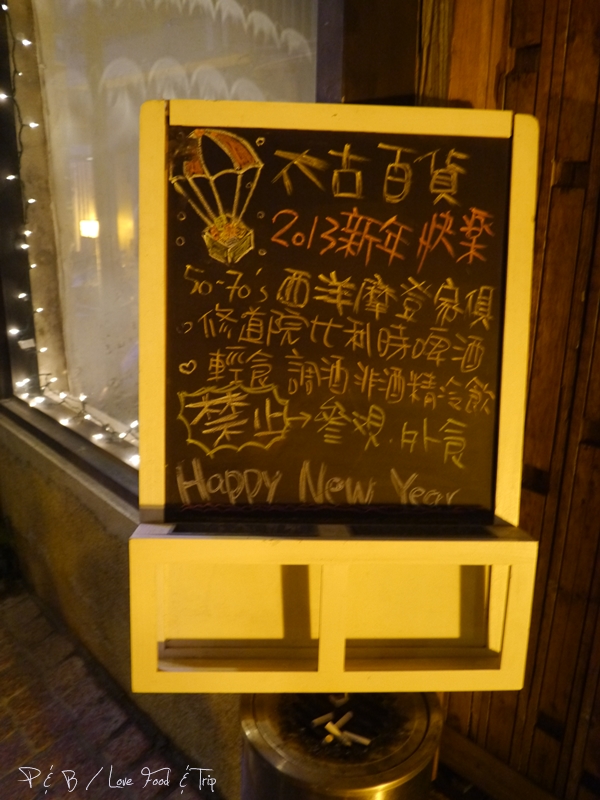 太古百貨
2013新年快樂
50-70's 西洋摩登家俱
修道院比利時啤酒
輕食 調酒 非酒精冷飲
禁止→參観.外食
Happy New Year
P & B / Love Food & Trip